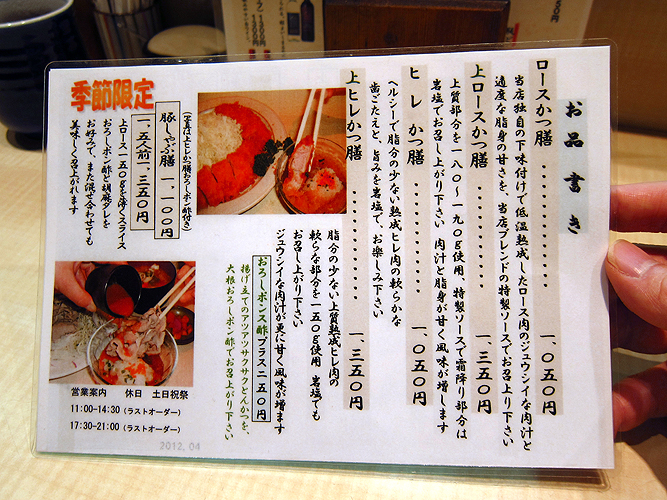 お品書き
ロースかつ膳 ‥‥‥‥‥‥‥‥ 一、〇五〇円
当店独自の下味付けで低温熟成したロース肉のジュウシイな肉汁と
適度な脂身の甘さを、当店ブレンドの特製ソースでお召し上り下さい
上ロースかつ膳 ‥‥‥‥‥‥‥‥ 一、三五〇円
上質部分を一八〇～一九〇g使用、特製ソースで霜降り部分は
岩塩でお召し上がり下さい 肉汁と脂身が甘く風味が増します
ヒレかつ膳 ‥‥‥‥‥‥‥‥ 一、〇五〇円
ヘルシーで脂分の少ない熟成ヒレ肉の軟らかな
歯ごたえと、旨みを岩塩で、お楽しみ下さい
上ヒレかつ膳 ‥‥‥‥‥‥‥‥ 一、三五〇円
脂分の少ない上質熟成ヒレ肉の
軟らな部分を一五〇g使用 岩塩でも
お召し上り下さい
ジュウシイな肉汁が更に甘く風味が増ます
おろしポンズ酢プラス二五〇円
揚げ立てのアツアツサクサクとんかつを、
大根おろしポン酢でお召上がり下さい
季節限定
(写真は上ヒレかつ膳おろしポン酢付き)
豚しゃぶ膳 一、一〇〇円
一、五人前一、三五〇円
上ロース一五〇gを薄くスライス
おろしポン酢と胡麻ダレを
お好みで、また混せ合わせても
美味しく召上がれます
営業案内 休日 土日祝祭
11:00-14:30(ラストオーダー)
17:30-21:00(ラストオーダー)
2012.04